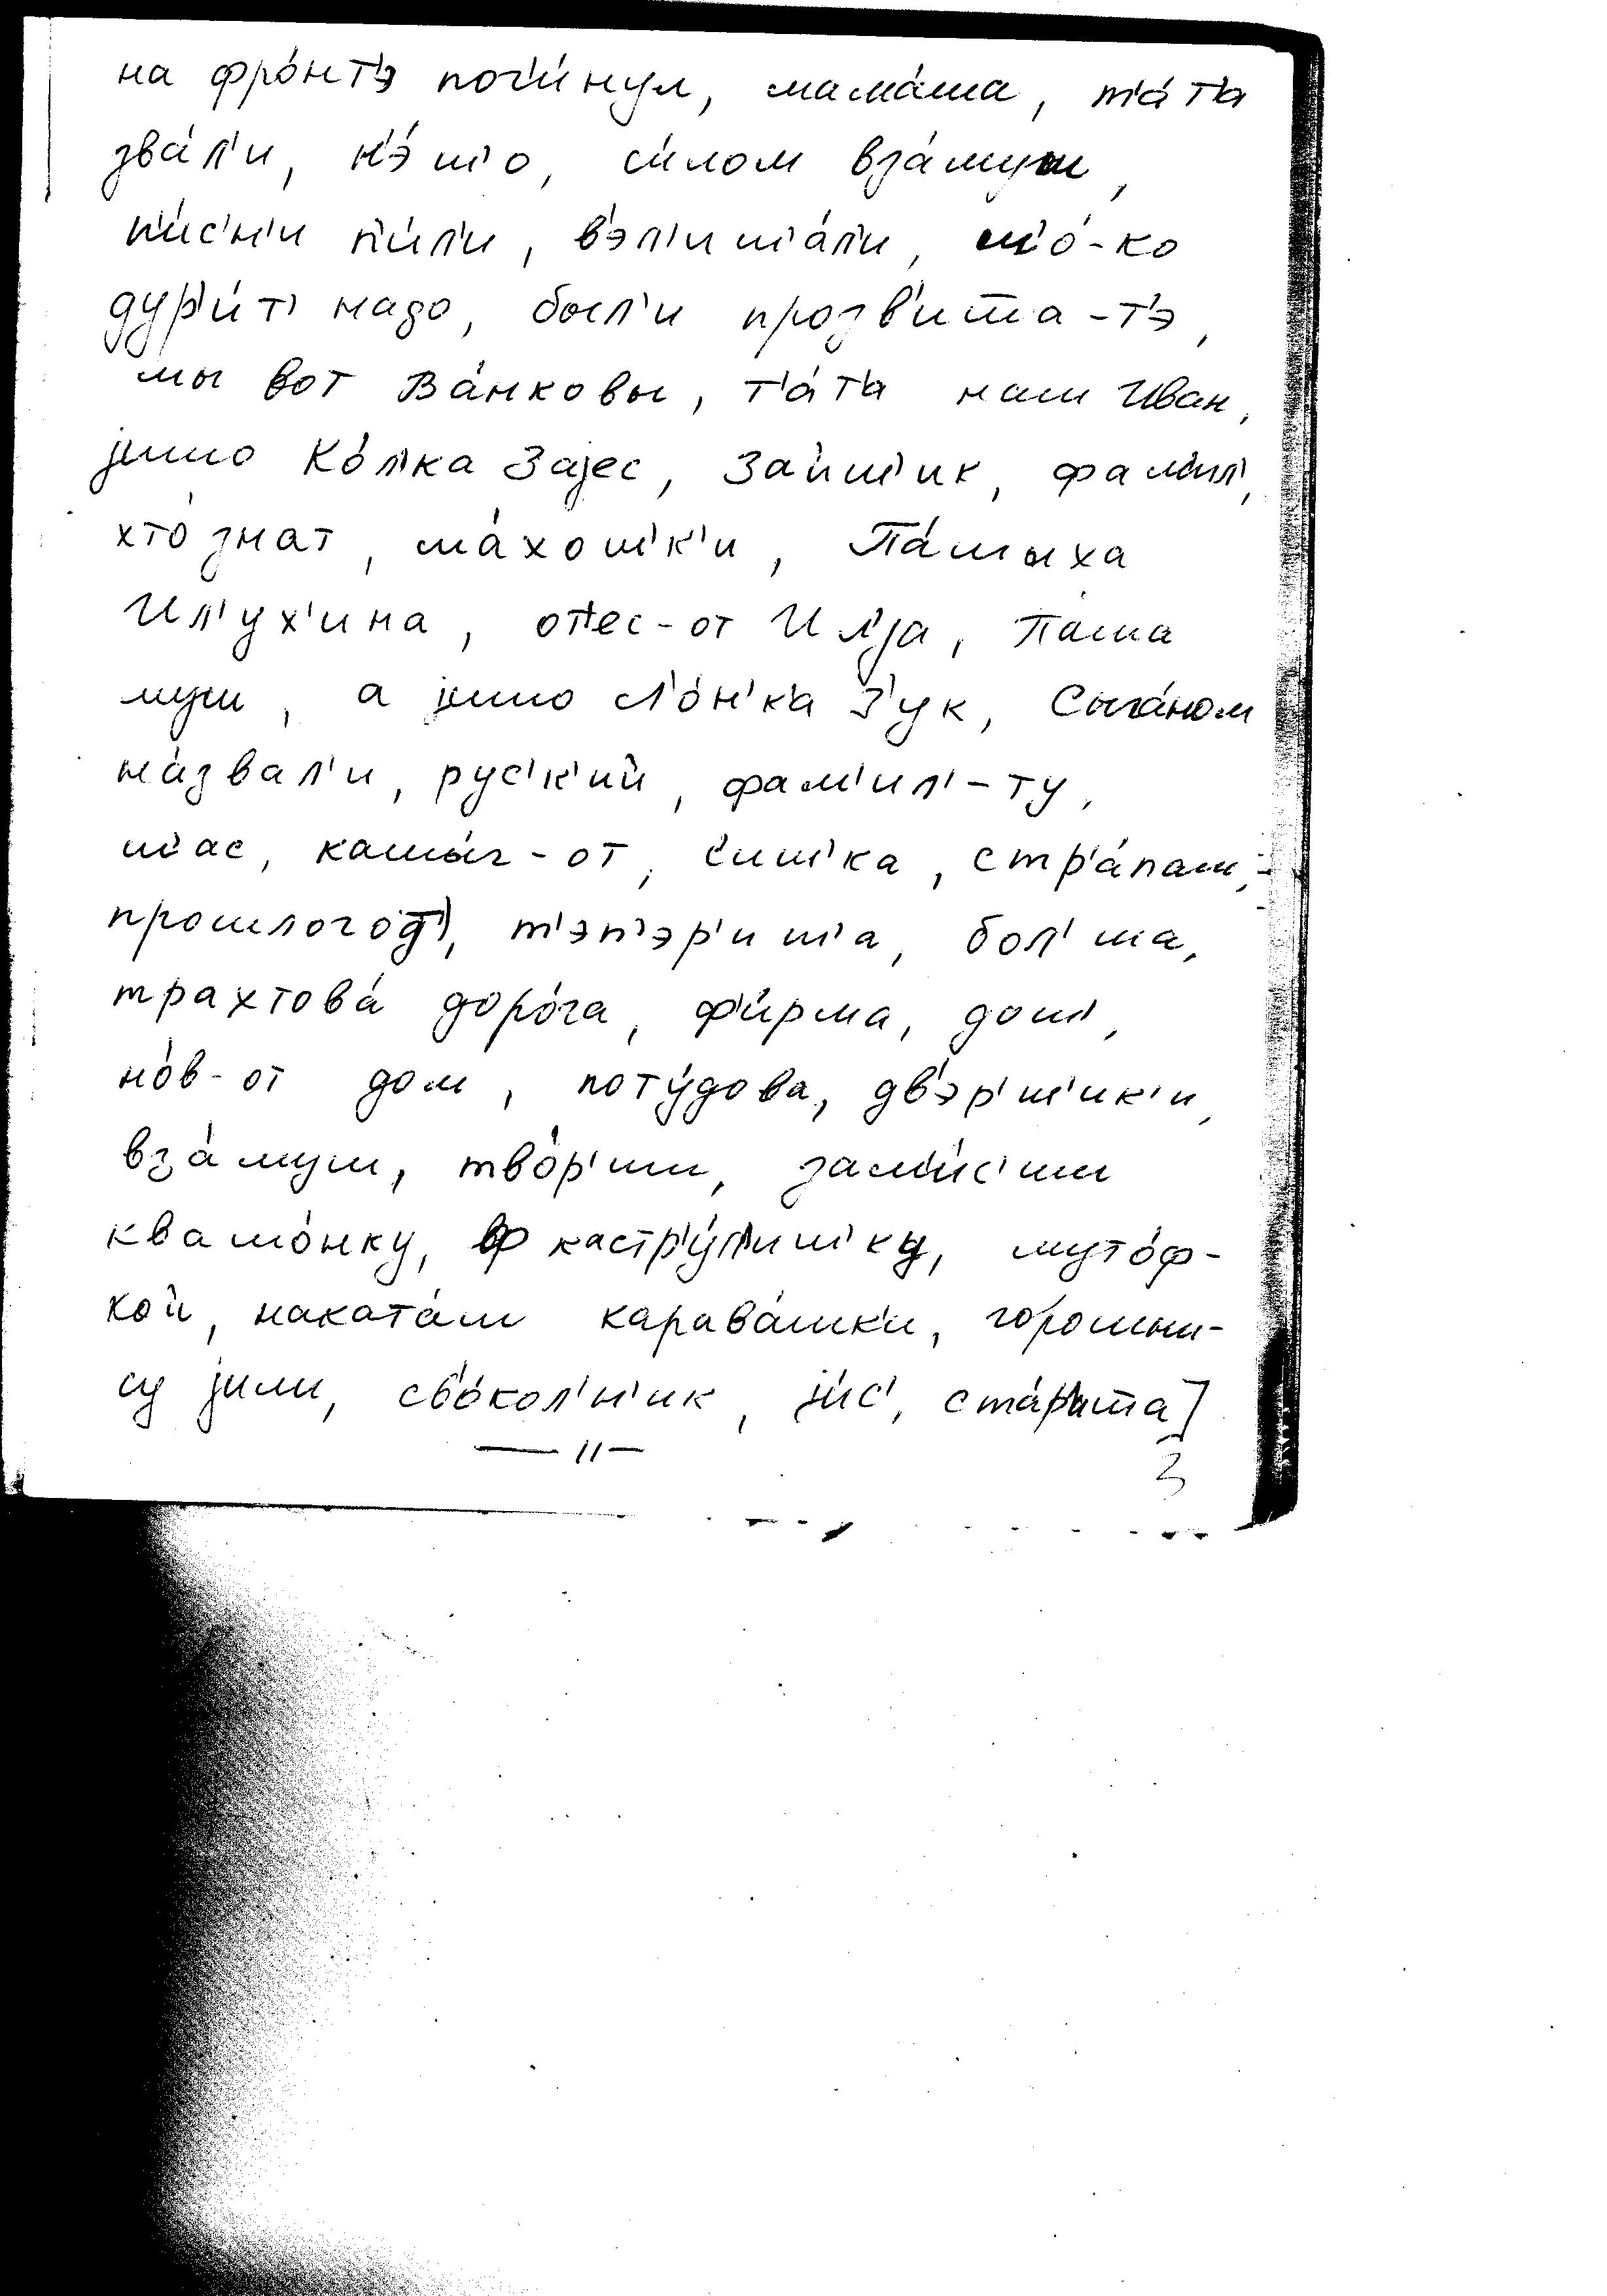 на фро́нт'э пог'и́нул, мама́ша, т'а́т'а
зва́л'и, н'э́ш'о, си́лом вза́муш,
п'и́с'н'и п'и́л'и, в'эл'иш'а́л'и, ш'о́-ко
дур'и́т' надо, был'и прозв'ишша-т'э,
мы вот Ва́нковы, т'а́т'а наш Иван,
jишо Ко́л'ка Заjес, Зайш'ик, фам'ил',
хто́ знат, ма́хош'к'и, Па́шыха
Ил'ух'ина, от'ес-от Ил'jа, Паша
муш, а jишо Л'о́н'к'а З'ук, Сыга́ном
на́звал'и, рус'к'ий, фам'ил'-ту,
ш'ас, кашы́г-от, с'иш'ка, стр'а́паш,
прошлого́д', т'эп'эр'иш'а, бол'ша,
трахтова́ доро́га, ф'и́рма, дош',
но́в-от дом, поту́дова, дв'эр'ш'ик'и,
вза́муш, тво́р'иш, зам'и́с'иш
квашо́нку, ф кастр'у́л'иш'ку, муто́ф-
кой, наката́ш карава́шк'и, горошни-
су jили, св'о́кол'н'ик, jис', ста́р'ишша]
— 11 —
3